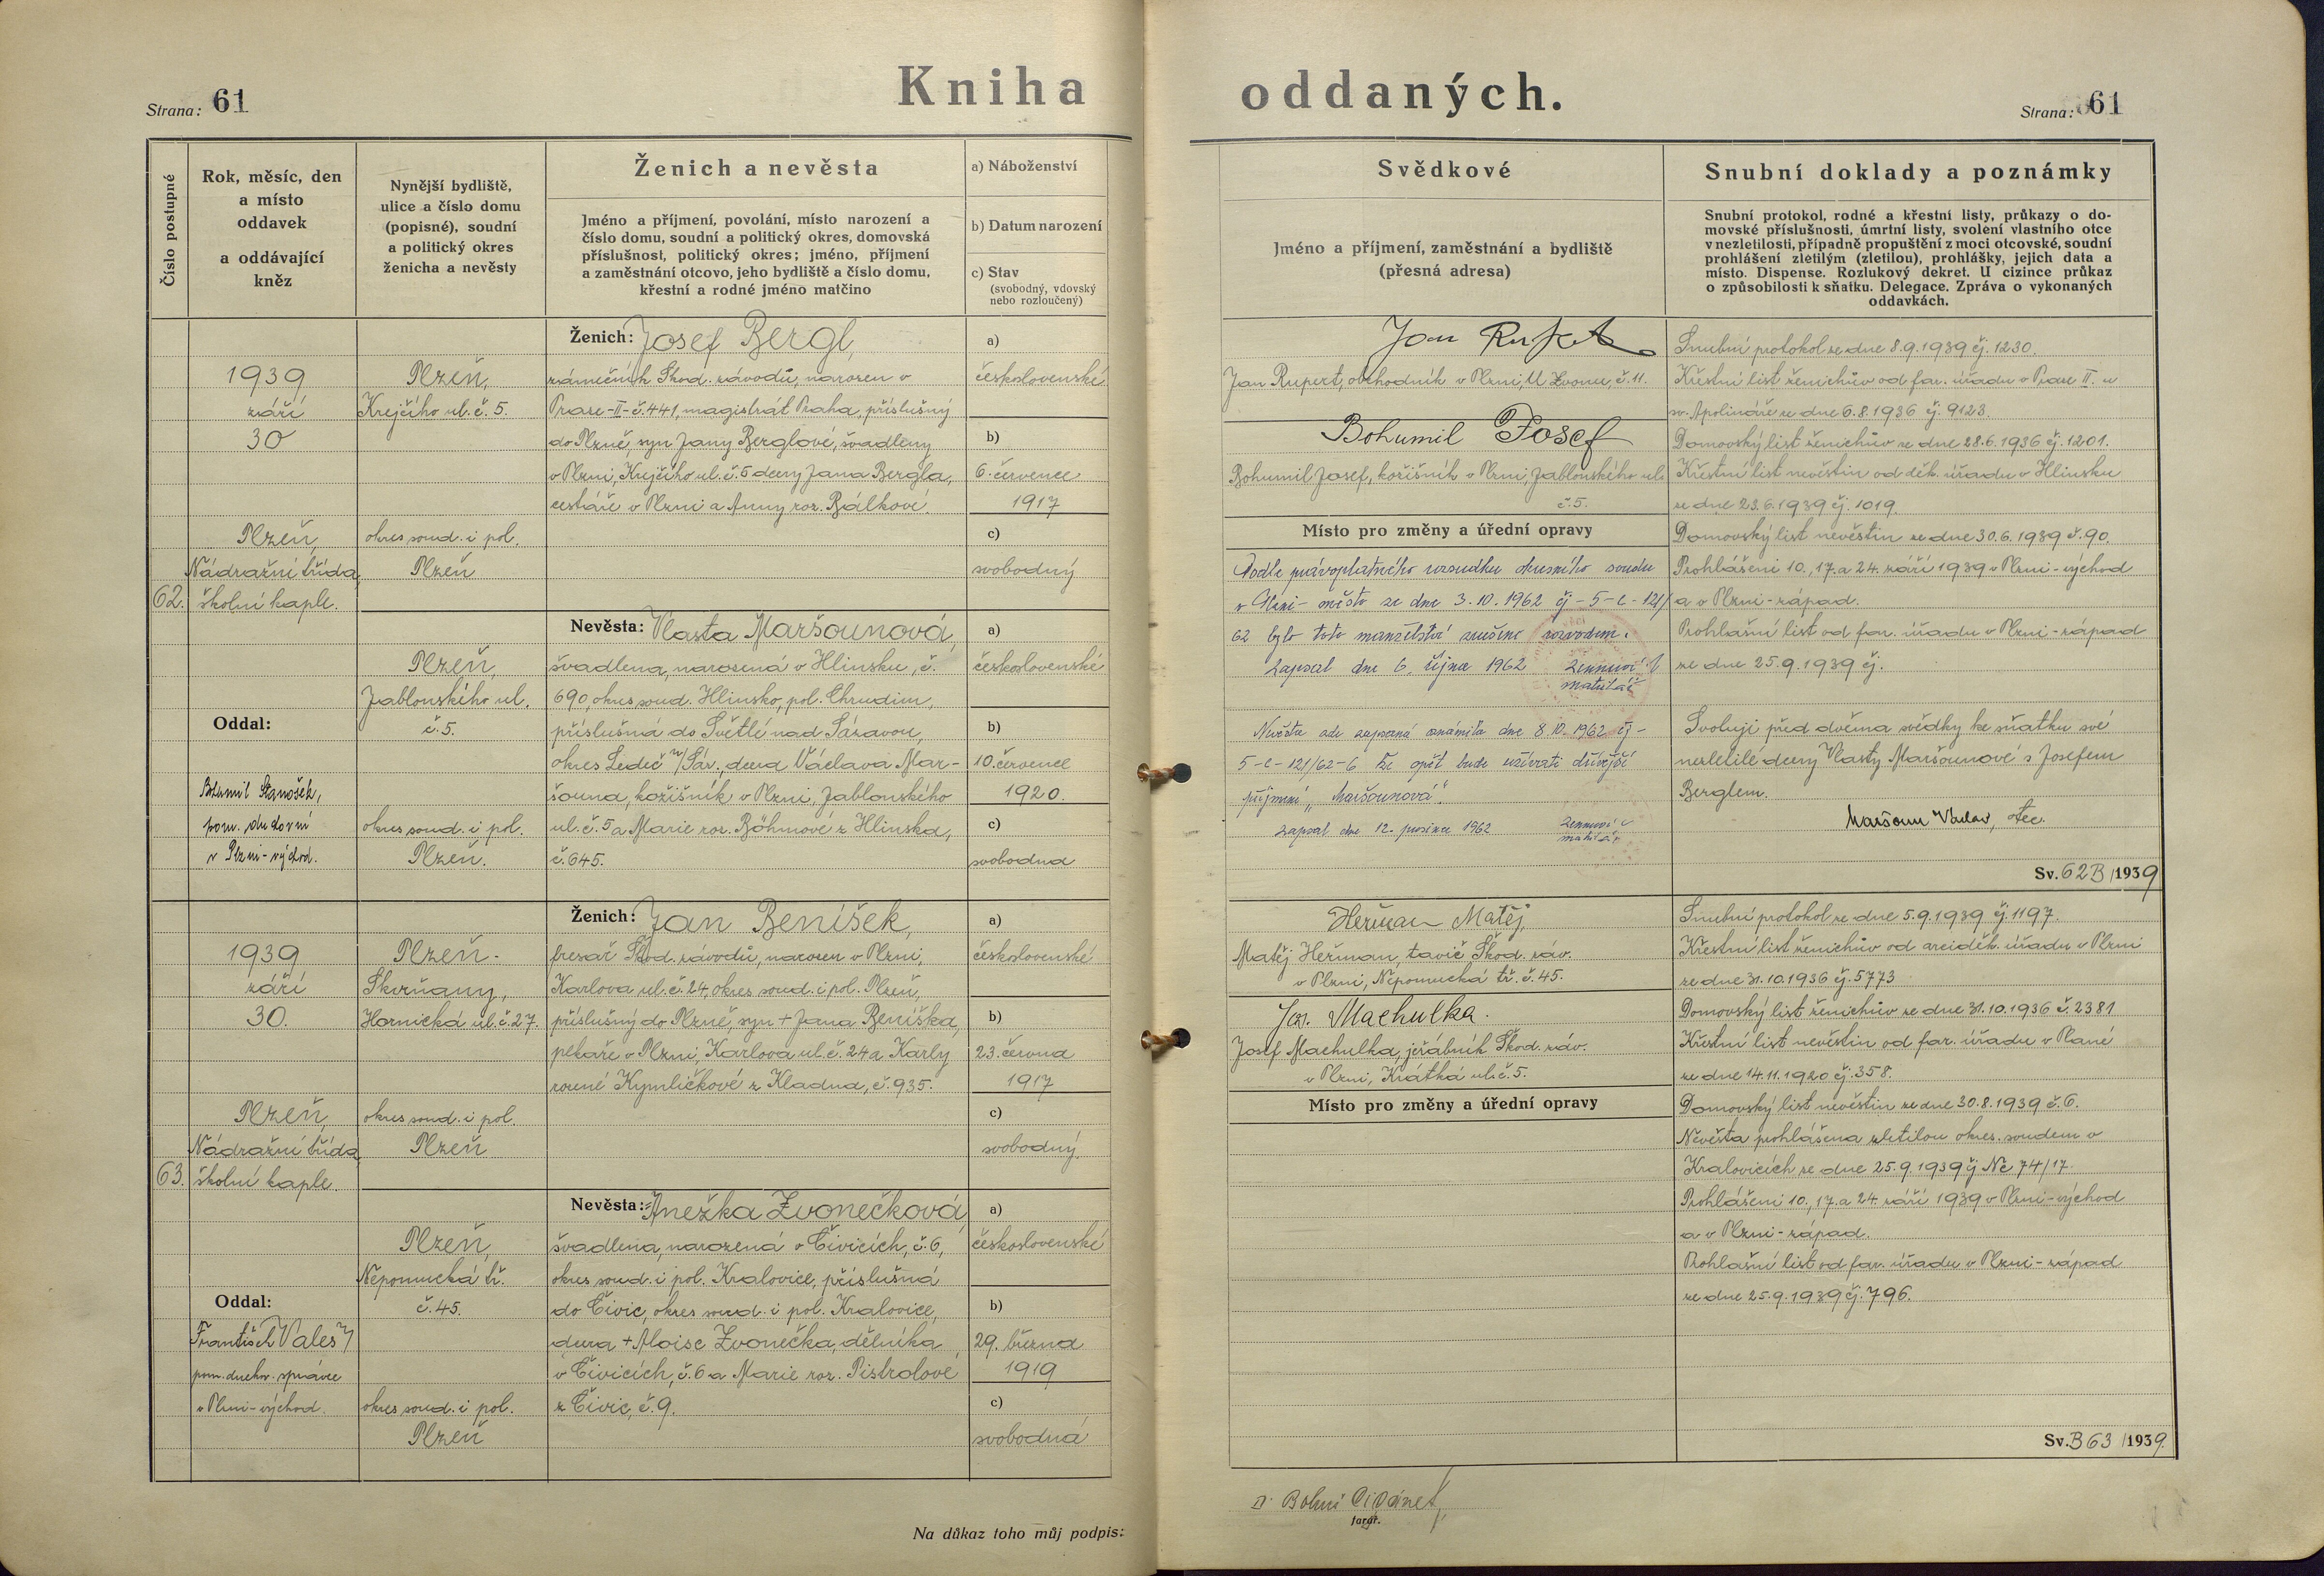 Kniha oddaných.
Strana: 61
Strana: 61
Číslo postupné
Rok, měsíc, den
a místo
oddavek
a oddávající
kněz
Nynější bydliště,
ulice a číslo domu
(popisné), soudní
a politický okres
ženicha a nevěsty
Ženich a nevěsta
Jméno a příjmení, povolání, místo narození a
číslo domu, soudní a politický okres, domovská
příslušnost, politický okres; jméno, příjmení
a zaměstnání otcovo, jeho bydliště a číslo domu,
křestní a rodné jméno matčino
a) Náboženství
b) Datum narození
c) Stav
(svobodný, vdovský
nebo rozloučený)
Svědkové
Jméno a příjmení, zaměstnání a bydliště
(přesná adresa)
Snubní doklady a poznámky
Snubní protokol, rodné a křestní listy, průkazy o do-
movské příslušnosti, úmrtní listy, svolení vlastního otce
v nezletilosti, případně propuštění z moci otcovské, soudní
prohlášení zletilým (zletilou), prohlášky, jejich data a
místo. Dispense. Rozlukový dekret. U cizince průkaz
o způsobilosti k sňatku. Delegace. Zpráva o vykonaných
oddavkách.
62.
1939
září
30
Plzeň,
Nádražní třída,
školní kaple.
Oddal:
Bohumil Stanošek,
pom. duchovní
v Plzni-východ.
Plzeň,
Krejčího ul. č. 5.
okres soud. i pol.
Plzeň
Plzeň,
Jablonského ul.
č. 5.
okres soud. i pol.
Plzeň.
Ženich: Josef Bergl,
zámečník Škod. závodů, narozen v
Praze-II-č. 441, magistrát Praha, příslušný
do Plzně, syn Jany Berglové, švadleny
v Plzni, Krejčího ul. č. 5 dcery Jana Bergla,
cestáře v Plzni a Anny roz. Bálkové.
Nevěsta: Vlasta Maršounová,
švadlena, narozená v Hlinsku, č.
690, okres soud. Hlinsko, pol. Chrudim,
příslušná do Světlé nad Sázavou,
okres Ledeč n/Sáz., dcera Václava Mar-
šouna, kožišník v Plzni, Jablonského
ul. č. 5 a Marie roz. Böhmové z Hlinska,
č. 645.
a)
československé
b)
6. července
1917
c)
svobodný
a)
československé
b)
10. července
1920.
c)
svobodna
Jan Rupert
Jan Rupert, obchodník v Plzni, U Zvonu, č. 11.
Bohumil Josef
Bohumil Josef, kožišník v Plzni, Jablonského ul.
č. 5.
Místo pro změny a úřední opravy
Podle právoplatného rozsudku okresního soudu
v Plzni-město ze dne 3.10.1962 čj-5-C-121/
62 bylo toto manželství zrušeno rozvodem.
Zapsal dne 6. října 1962
matrikář
Nevěsta zde zapsaná oznámila dne 8.10.1962 čj-
5-C-121/62-6 že opět bude užívati dřívější
příjmení „Maršounová".
Zapsal dne 12. prosince 1962
matrikář
Snubní protokol ze dne 8.9.1939 čj. 1230.
Křestní list ženichův od far. úřadu v Praze II. u
sv. Apolináře ze dne 6.8.1936 čj. 9123.
Domovský list ženichův ze dne 28.6.1936 čj. 1201.
Křestní list nevěstin od děk. úřadu v Hlinsku
ze dne 23.6.1939 čj. 1019.
Domovský list nevěstin ze dne 30.6.1939 č. 90.
Prohlášeni 10., 17. a 24. září 1939 v Plzni-východ
a v Plzni-západ.
Prohlašní list od far. úřadu v Plzni-západ
ze dne 25.9.1939 čj.
Svoluji před dvěma svědky ke sňatku své
nezletilé dcery Vlasty Maršounové s Josefem
Berglem.
Maršoun Václav, otec.
Sv. 62B/1939
63.
1939
září
30.
Plzeň,
Nádražní třída,
školní kaple.
Oddal:
František Valeš
pom. duchov. správce
v Plzni-východ.
Plzeň-
Skvrňany,
Hornická ul. č. 27.
okres soud. i pol.
Plzeň
Plzeň,
Nepomucká tř.
č. 45.
okres soud. i pol.
Plzeň
Ženich: Jan Beníšek,
fresař Škod. závodů, narozen v Plzni,
Karlova ul. č. 24, okres soud. i pol. Plzeň,
příslušný do Plzně, syn + Jana Beníška,
pekaře v Plzni, Karlova ul. č. 24 a Karly
rozené Kymličkové z Kladna, č. 935.
Nevěsta: Anežka Zvonečková,
švadlena, narozená v Čivicích, č. 6,
okres soud. i pol. Kralovice, příslušná
do Čivic, okres soud. i pol. Kralovice,
dcera + Aloise Zvonečka, dělníka
v Čivicích, č. 6 a Marie roz. Pistrolové
z Čivic, č. 9.
a)
československé
b)
23. června
1917
c)
svobodný.
a)
československé
b)
29. března
1919
c)
svobodná
Heřman Matěj,
Matěj Heřman, tavič Škod. záv.
v Plzni, Nepomucká tř. č. 45.
Jos. Machulka.
Josef Machulka, jeřábník Škod. záv.
v Plzni, Krátká ul. č. 5.
Místo pro změny a úřední opravy
Snubní protokol ze dne 5.9.1939 čj. 1197.
Křestní list ženichův od arciděk. úřadu v Plzni
ze dne 31.10.1936 čj. 5773
Domovský list ženichův ze dne 31.10.1936 č. 2381
Křestní list nevěstin od far. úřadu v Plané
ze dne 14.11.1920 čj. 358.
Domovský list nevěstin ze dne 30.8.1939 č. 6.
Nevěsta prohlášena zletilou okres. soudem v
Kralovicích ze dne 25.9.1939 čj Nc 74/17.
Prohlášeni 10., 17. a 24. září 1939 v Plzni-východ
a v Plzni-západ.
Prohlašní list od far. úřadu v Plzni-západ
ze dne 25.9.1939 čj. 796.
Sv. B63/1939.
Na důkaz toho můj podpis:
farář.